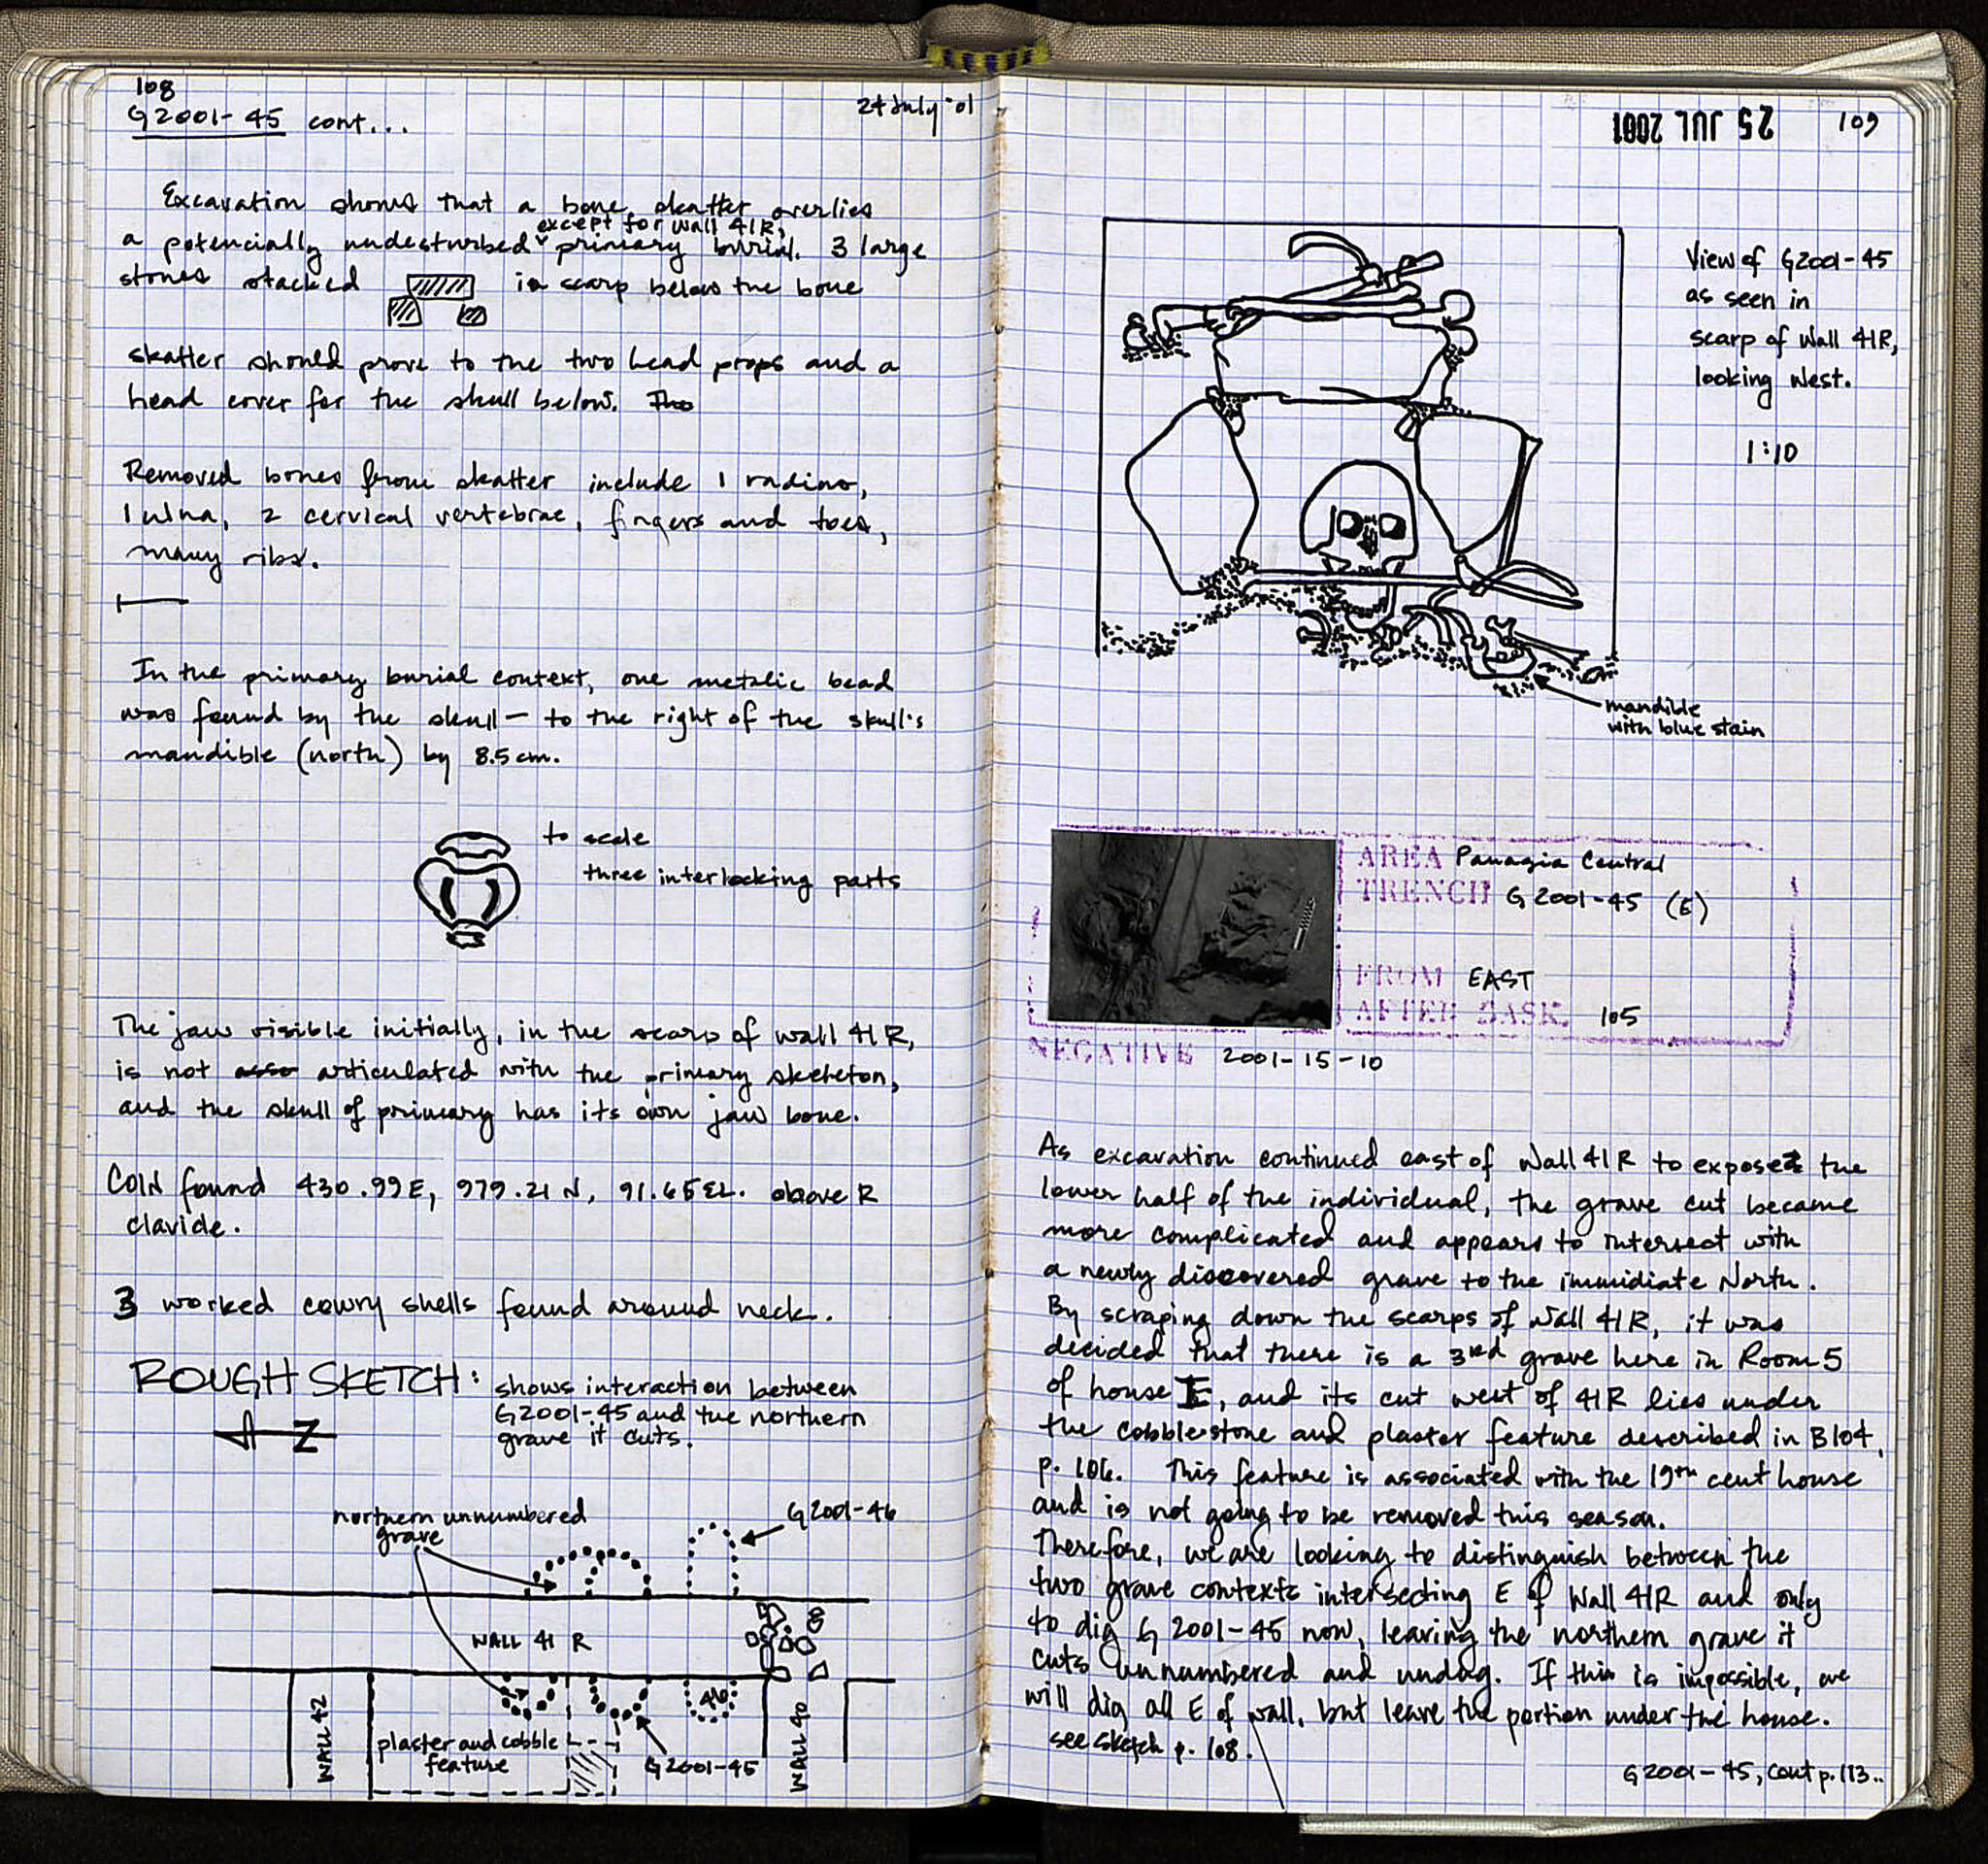 108
G2001-45 cont...
24 July '01
Excavation shows that a bone skatter overlies
a potencially undesturbed except for wall 41R, primary burial. 3 large
stones stacked in scarp below the bone
skatter should prove to the two head props and a
head cover for the skull below. The
Removed bones from skatter include 1 radius,
1 ulna, 2 cervical vertebrae, fingers and toes,
many ribs.
In the primary burial context, one metalic bead
was found by the skull - to the right of the skull's
mandible (north) by 8.5 cm.
to scale
three interlocking parts
The jaw visible initially, in the scarp of wall 41R,
is not asso articulated with the primary skeleton,
and the skull of primary has its own jaw bone.
COIN found 430.99E, 979.21 N, 91.65 EL. above R
clavicle.
3 worked cowry shells found around neck.
ROUGH SKETCH: shows interaction between
G2001-45 and the northern
grave it cuts.
N
northern unnumbered
grave
G2001-46
WALL 41 R
46
WALL 42
plaster and cobble
feature
G2001-45
WALL 40
25 JUL 2001
109
View of G2001-45
as seen in
scarp of Wall 41R,
looking West.
1:10
mandible
with blue stain
AREA Panagia Central
TRENCH G2001-45 (E)
FROM EAST
AFTER BASK. 105
NEGATIVE 2001-15-10
As excavation continued east of Wall 41R to expose the
lower half of the individual, the grave cut became
more complicated and appears to intersect with
a newly discovered grave to the immidiate North.
By scraping down the scarps of Wall 41R, it was
decided that there is a 3rd grave here in Room 5
of house I, and its cut west of 41R lies under
the cobblestone and plaster feature described in B104,
p. 106. This feature is associated with the 19th cent house
and is not going to be removed this season.
Therefore, we are looking to distinguish between the
two grave contexts intersecting E of Wall 41R and only
to dig G2001-45 now, leaving the northern grave it
cuts unnumbered and undug. If this is impossible, we
will dig all E of wall, but leave the portion under the house.
see sketch p. 108.
G2001-45, cont p. 113..